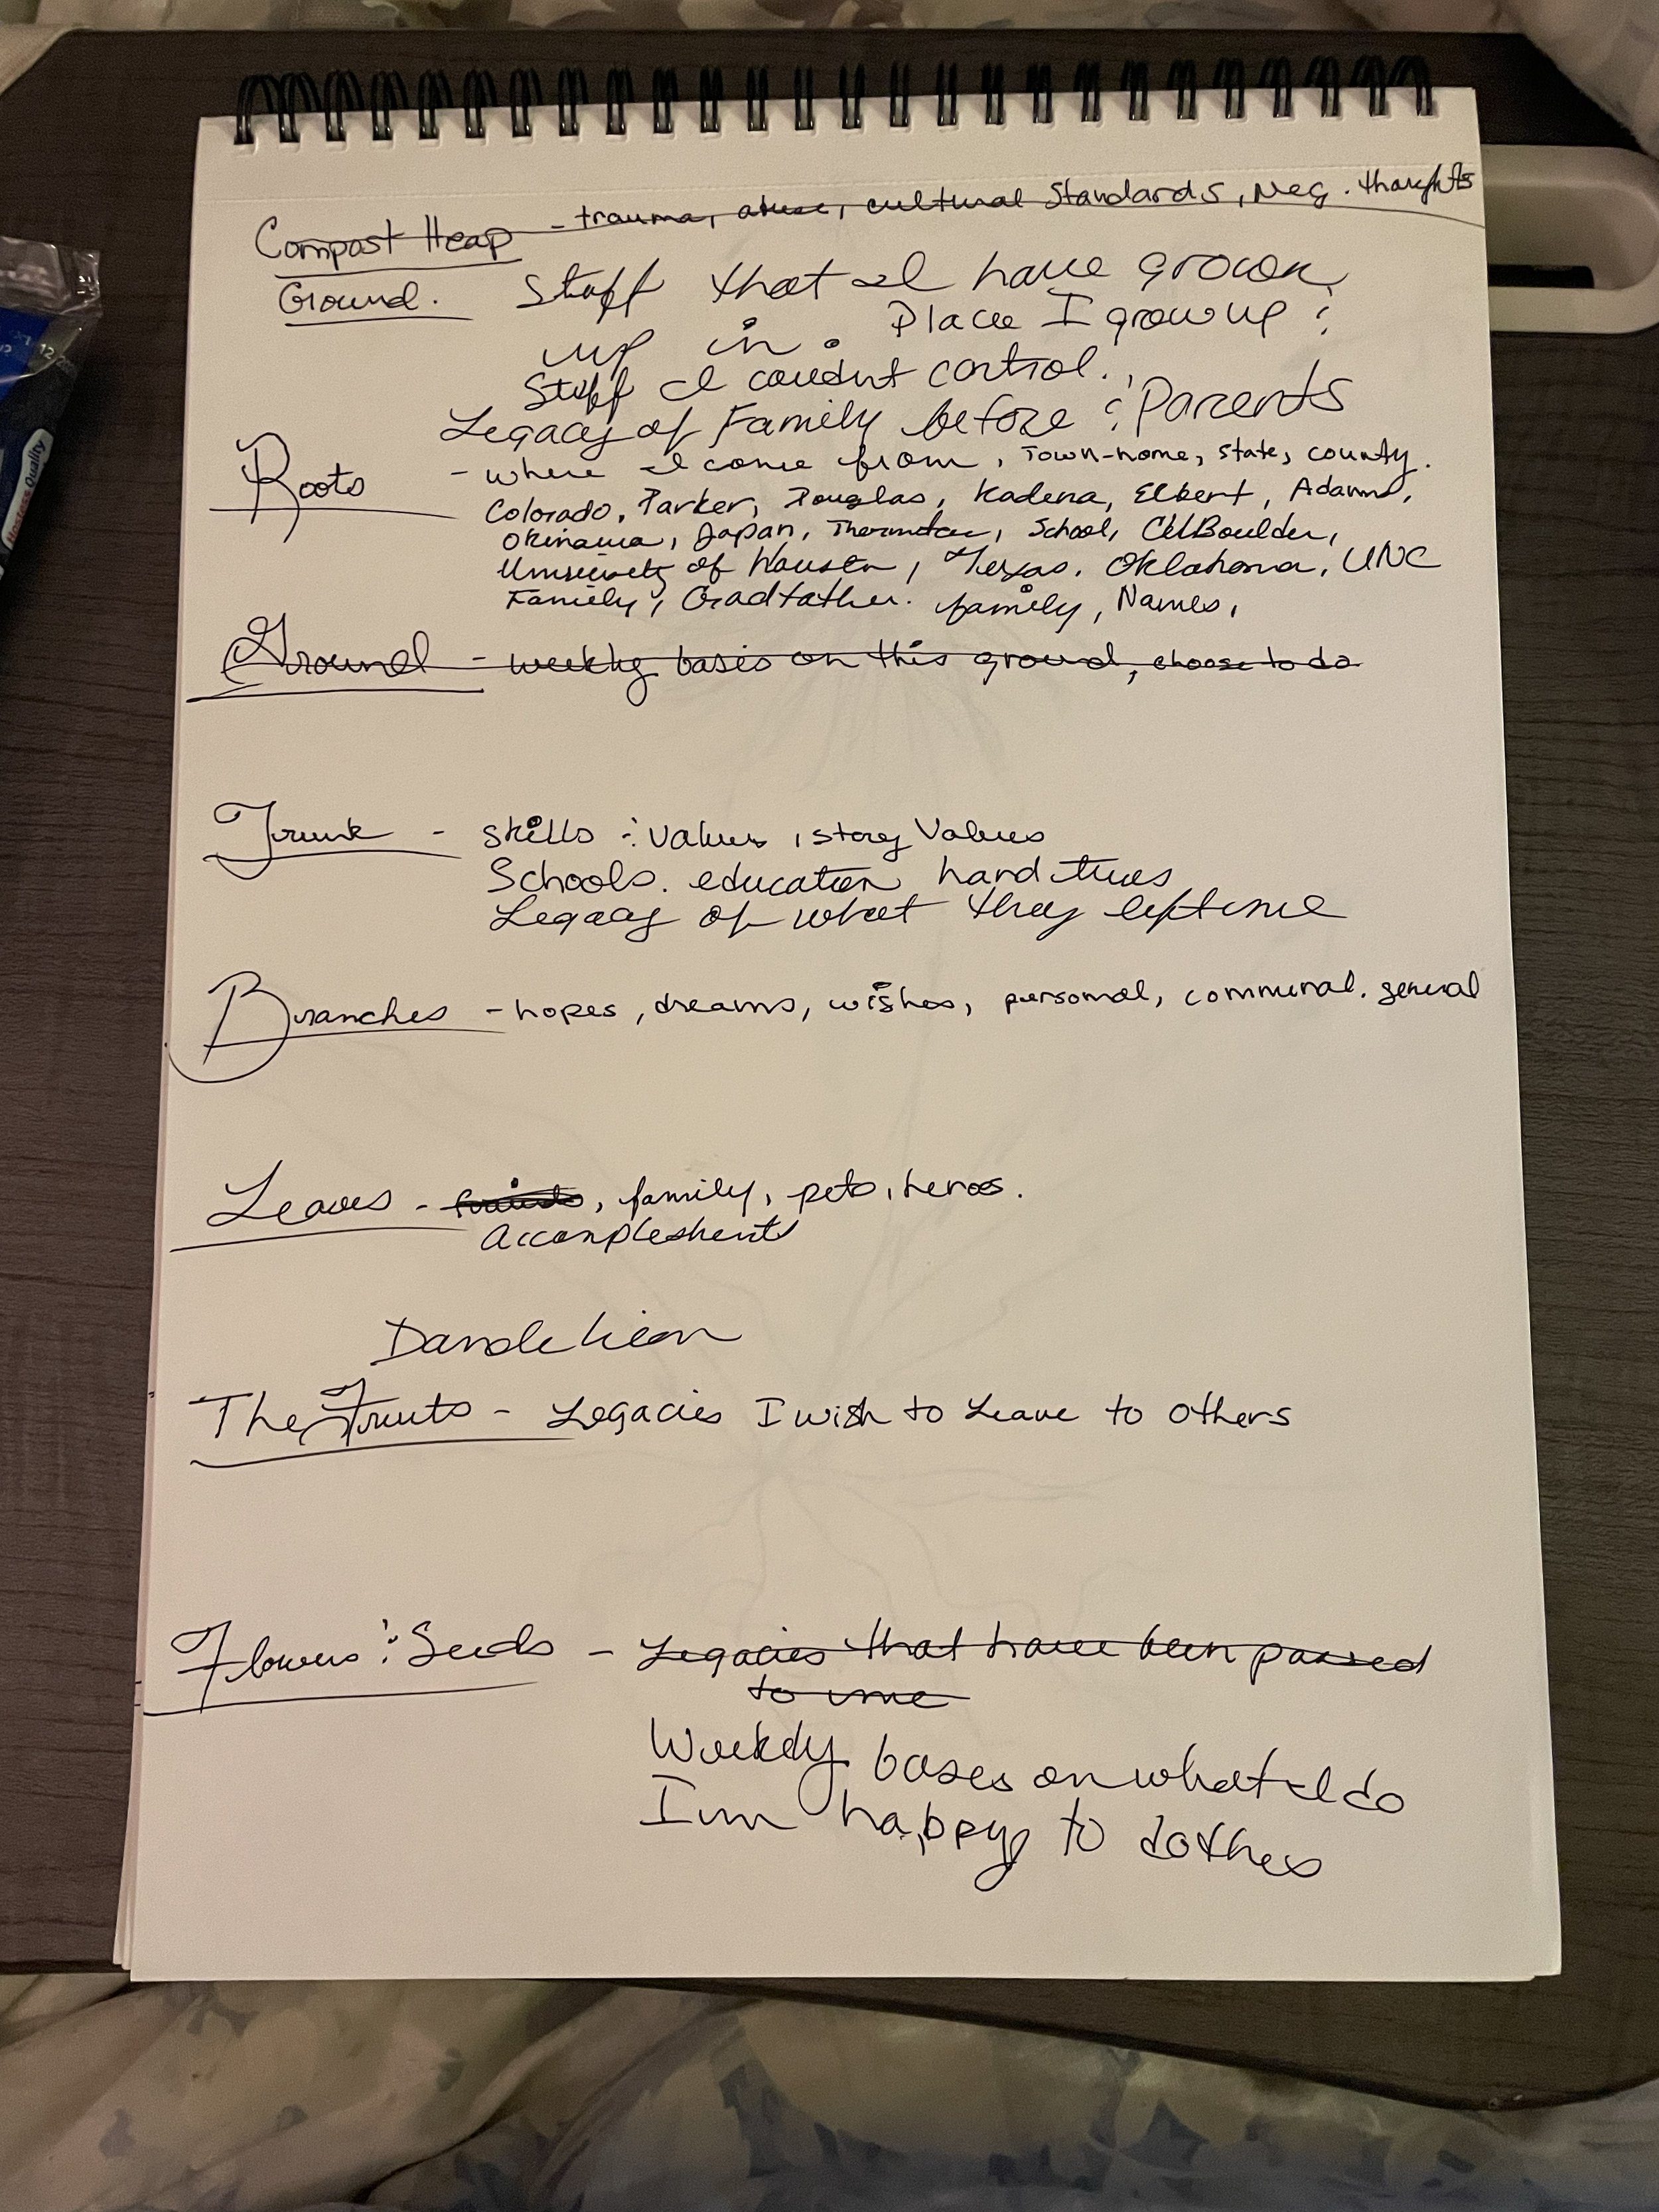 Compost Heap - trauma, abuse, cultural Standards, Neg. thoughts
Ground. Stuff that I have grown
up in. Place I grow up &
Stuff I coudnt control.
Legacy of Family before & Parents
Roots - where I come from, Town-home, State, county.
Colorado, Parker, Douglas, Kadena, Elbert, Adams,
Okinawa, Japan, School, CU Boulder,
University of Houston, Texas, Oklahoma, UNC
Family, Gradfather. family, Names,
Ground - weekly basis on this ground, choose to do
Trunk - Skills & Values, story Values
Schools. education hard times
Legacy of what they left me
Branches - hopes, dreams, wishes, personal, communal. general
Leaves - friends, family, pets, heros.
Accomplishents
Dandelion
The Fruits - Legacies I wish to Leave to others
Flowers & Seeds - Legacies that have been passed
to me
Weekly bases on what I do
Im happy to do
Quality
12